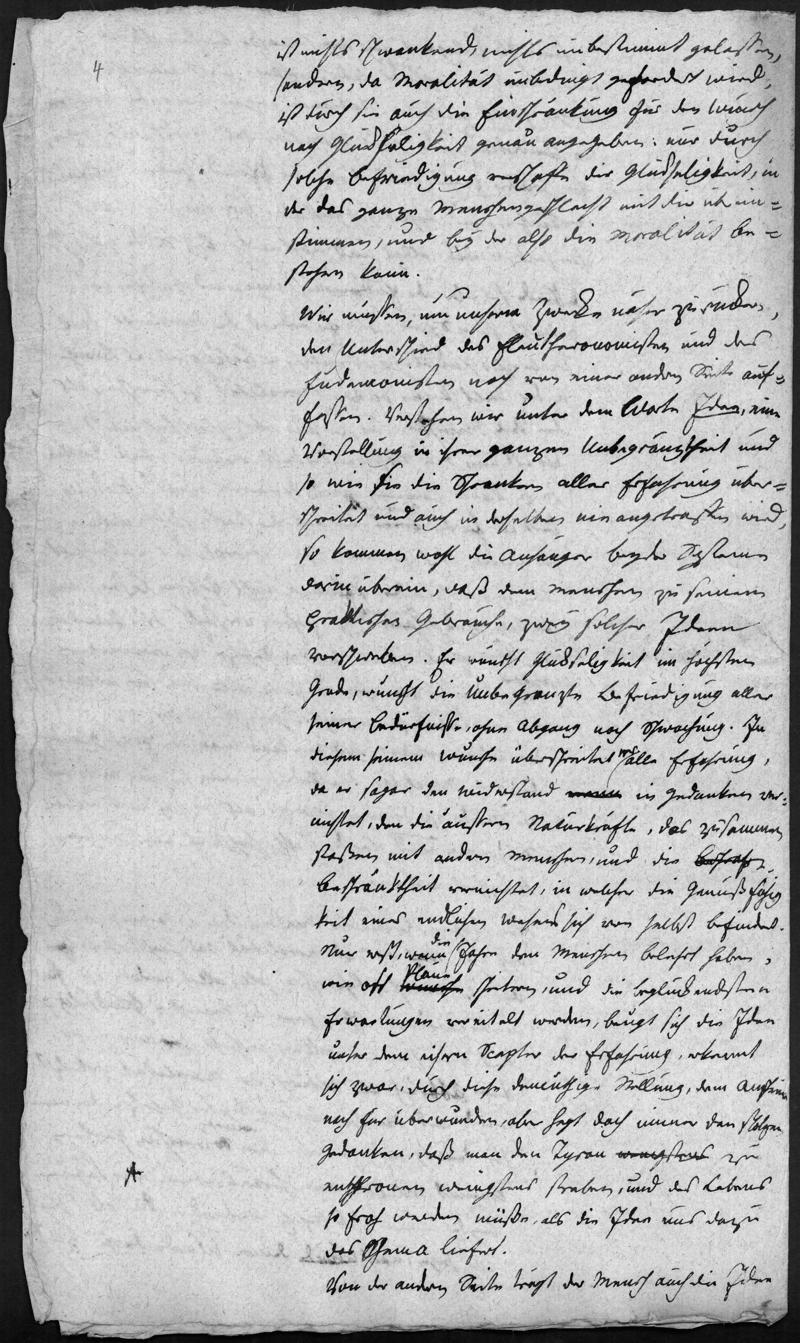 4
ist nichts schwankend, nichts unbestimmt gelassen,
sondern, da Moralität unbedingt gefordert wird,
ist durch sie auch die Einschränkung für den Wunsch
nach Glückseligkeit genau angegeben: nur durch
solche Befriedigung verschaffe dir Glückseligkeit, in
der das ganze Menschengeschlecht mit dir überein=
stimmen, und bey der also die Moralität be=
stehen kann.
Wir müssen, um unserm Zwecke näher zu rücken,
den Unterschied des Eleutheronomisten und des
Eudemonisten noch von einer andern Seite auf=
fassen. Verstehen wir unter dem Worte Idee, eine
Vorstellung in ihrer ganzen Unbegränztheit und
so wie sie die Schranken aller Erfahrung über=
schreitet und auch in derselben nie angetroffen wird,
so kommen wohl die Anhänger beyder Systeme
darin überein, daß dem Menschen zu seinem
praktischen Gebrauche, zwey solcher Ideen
vorschweben. Er wünscht Glückseligkeit im höchsten
Grade, wünscht die unbegränzte Befriedigung aller
seiner Bedürfnisse, ohne Abgang noch Schwächung. In
diesem seinem Wunsche überschreitet er alle Erfahrung,
da er sogar den Widerstand in Gedanken ver=
nichtet, den die äussern Naturkräfte, das Zusammen
stoßen mit andern Menschen, und die
Beschränktheit vernichtet, in welcher die Genußfähig
keit eines endlichen Wesens sich von selbst befindet.
Nur erst, wenn die Jahre den Menschen belehrt haben,
wie oft Pläne scheitern, und die beglückendsten
Erwartungen vereitelt werden, beugt sich die Idee
unter dem eisern Scepter der Erfahrung, erkennt
sich zwar, durch diese demüthige Stellung, dem Anschein
nach für überwunden, aber hegt doch immer den stolzen
Gedanken, daß man den Tyran zu
entthronen wenigstens streben, und des Lebens
so froh werden müsse, als die Idee uns dazu
das Schema liefert.
Von der andern Seite trägt der Mensch auch die Idee